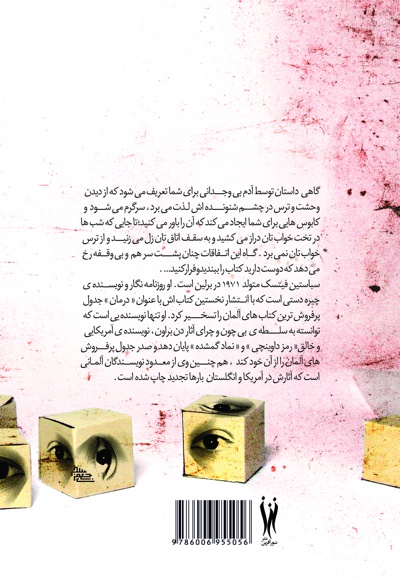 گاهی داستان توسط آدم بی وجدانی برای شما تعریف می شود که از دیدن
وحشت و ترس در چشم شنونده اش لذت می برد، سرگرم می شود و
کابوس هایی برای شما ایجاد می کند که آن را باور می کنید؛ تا جایی که شب ها
در تخت خواب تان دراز می کشید و به سقف اتاق تان زل می زنید و از ترس
خواب تان نمی برد. گاه این اتفاقات چنان پشت سر هم و بی وقفه رخ
می دهد که دوست دارید کتاب را ببندید و فرار کنید...
سباستین فیتسک متولد ۱۹۷۱ در برلین است. او روزنامه نگار و نویسنده ی
چیره دستی است که با انتشار نخستین کتاب اش با عنوان «درمان» جدول
پرفروش ترین کتاب های آلمان را تسخیر کرد. او تنها نویسنده یی است که
توانسته به سلطه ی بی چون و چرای آثار دن براون، نویسنده ی آمریکایی
و خالق «رمز داوینچی» و «نماد گمشده» پایان دهد و صدر جدول پرفروش
های آلمان را از آن خود کند، هم چنین وی از معدود نویسندگان آلمانی
است که آثارش در آمریکا و انگلستان بارها تجدید چاپ شده است.
9 786006 955056